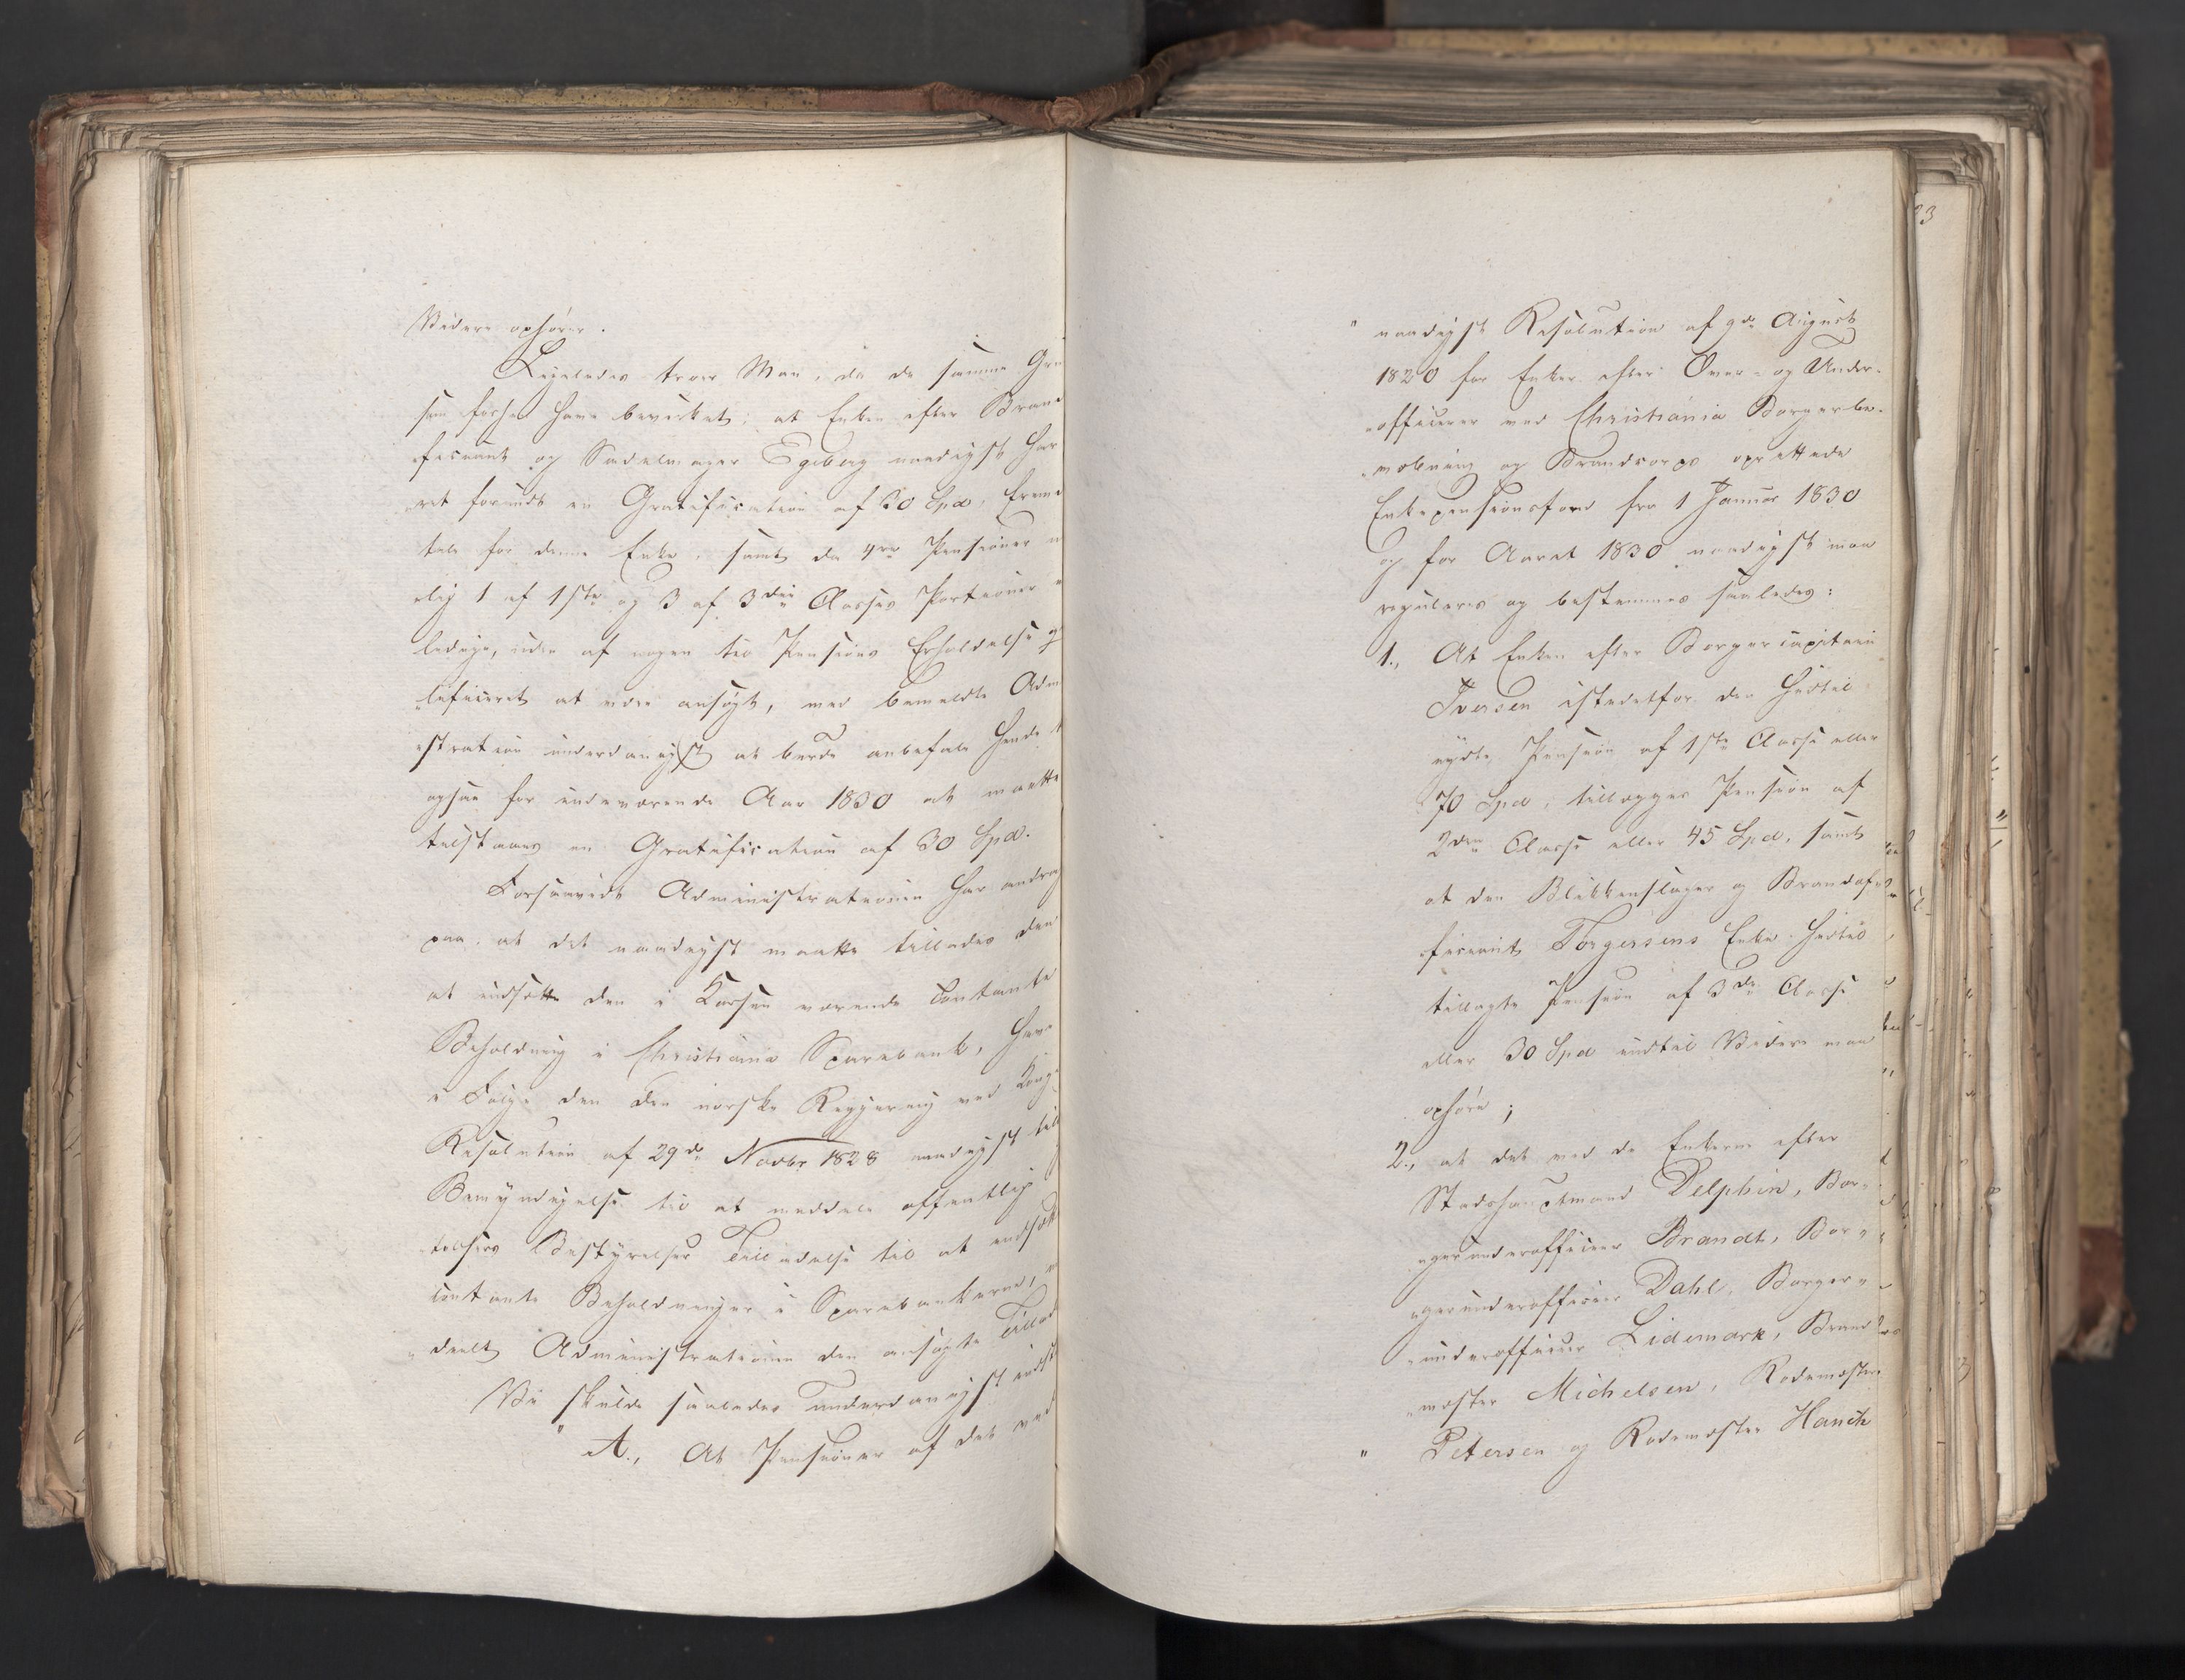 Videre ophører.
Ligeledes troer Man, da de samme Gru
som forhen have bevirket, at Enken efter Brand
ficiant og Sadelmager Egeberg naadigst har
ret forundt en Gratification af 30 Spd,
tale for denne Enke, samt da 4re Pensioner
lig 1 af 1ste og 3 af 3die Classes Portioner
ledige, uden af nogen til Pensions Erholdelse
lificeret at være ansøgt, med bemeldte Adm
stration underdanigst at burde anbefale hende
ogsaa for indeværende Aar 1830 at maatte
tilstaaes en Gratification af 30 Spd.
Forsaavidt Administrationen har andra
paa, at det naadigst maatte tillades den
at indsætte den i Kassen værende Contante
Beholdning i Christiania Sparebank, have
i Følge den den norske Regjering ved Kongl
Resolution af 29de Novbr 1828 naadigst
Bemyndigelse til at meddele offentlig
telsers Bestyrelser Tilladelse til at indsætte
contante Beholdninger i Sparebankerne,
deelt Administrationen den ansøgte Tillad
Vi skulde saaledes underdanigst indst
" A., At Pensioner af det ved
" naadigst Resolution af 9de August
1820 for Enker efter Over- og Under-
officerer ved Christiania Borgerbe-
væbning og Brandcorps oprettede
Enkepensionsfond fra 1 Januar 1830
og for Aaret 1830 naadigst maa
reguleres og bestemmes saaledes:
1., At Enken efter Borgercapitain
Iversen istedetfor den hidtil
nydte Pension af 1ste Classe eller
70 Spd, tillægges Pension af
2den Classe eller 45 Spd, samt
at den Blikkenslager og Brandof-
ficiant Torgersens Enke hidtil
tillagte Pension af 3die Classe
eller 30 Spd indtil Videre maa
ophøre;
2., at det med de Enkerne efter
Stadshauptmand Delphin, Bor-
gerunderofficeer Brandt, Bor-
gerunderofficeer Dahl, Borger-
underofficeer Lidemark, Brand
mester Michelsen, Rodemester
" Petersen og Rodemester Hanch